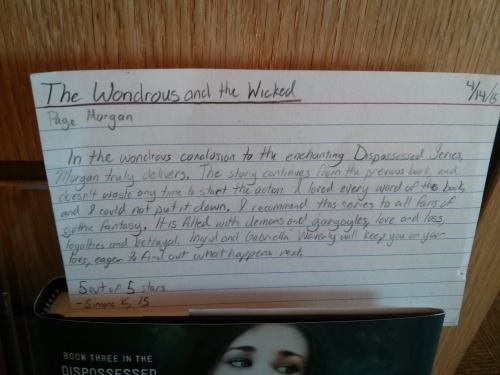 The Wondrous and the Wicked
4/14/15
Page Morgan
In the wondrous conclusion to the enchanting Dispossessed Series,
Morgan truly delivers. The story continues from the previous book, and
doesn't waste any time to start the action. I loved every word of this book,
and I could not put it down. I recommend this series to all fans of
gothic fantasy. It is filled with demons and gargoyles, love and loss,
loyalties and betrayal. Ingrid and Gabriella Waverly will keep you on your
toes, eager to find out what happens next.
5 out of 5 stars
- Simone K, 15
BOOK THREE IN THE
DISPOSSESSED